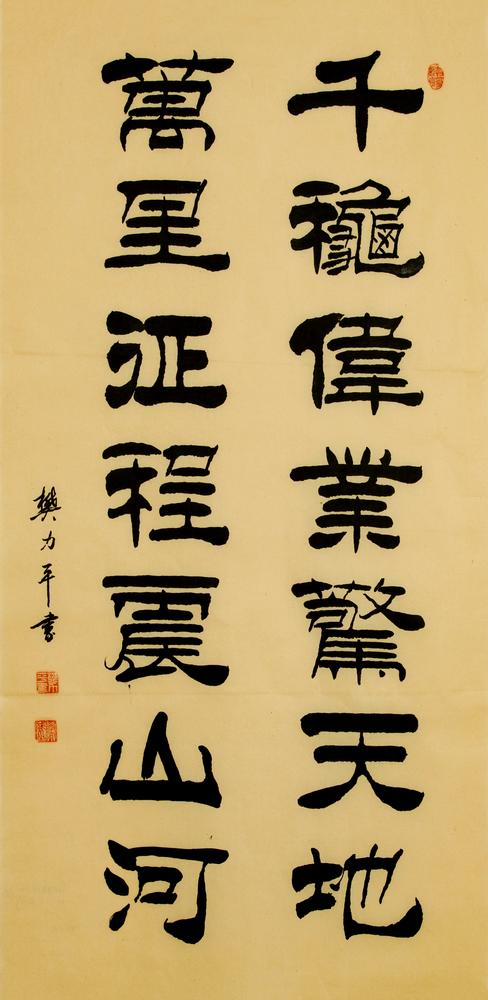 千龝偉業驚天地
萬里征程震山河
樊力平書